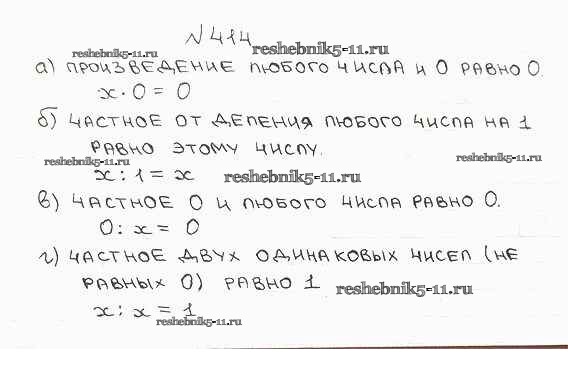 №414
reshebnik5-11.ru reshebnik5-11.ru
а) ПРОИЗВЕДЕНИЕ ЛЮБОГО ЧИСЛА И 0 РАВНО 0.
x · 0 = 0
б) ЧАСТНОЕ ОТ ДЕЛЕНИЯ ЛЮБОГО ЧИСЛА НА 1
РАВНО ЭТОМУ ЧИСЛУ.
reshebnik5-11.ru reshebnik5-11.ru
x : 1 = x reshebnik5-11.ru
в) ЧАСТНОЕ 0 И ЛЮБОГО ЧИСЛА РАВНО 0.
0 : x = 0
г) ЧАСТНОЕ ДВУХ ОДИНАКОВЫХ ЧИСЕЛ (НЕ
РАВНЫХ 0) РАВНО 1 reshebnik5-11.ru
x : x = 1
reshebnik5-11.ru